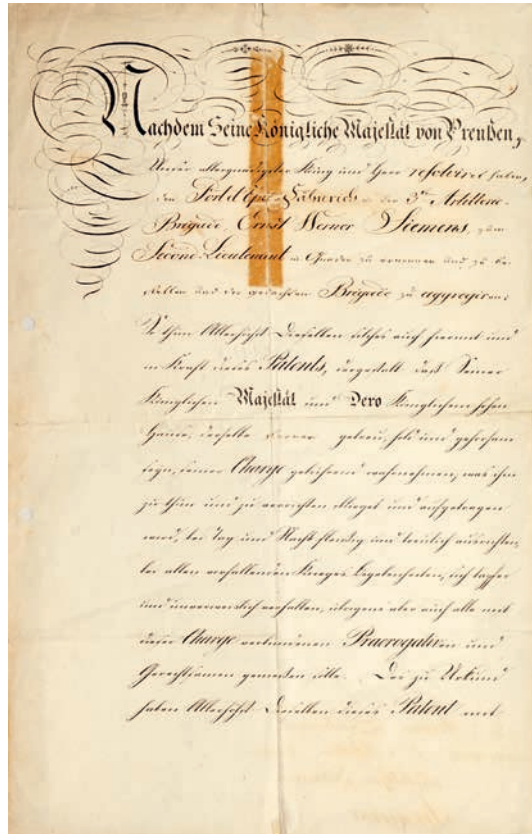 Nachdem Seine Königliche Majestät von Preußen,
Unser allergnädigster König und Herr resolviret haben,
den Port d'Epée-Fähnrich der 3ten Artillerie-
Brigade Ernst Werner Siemens, zum
Second-Lieutenant zu ernennen und zu be-
stellen und der gedachten Brigade zu aggregiren;
So thun Allerhöchst Dieselben solches auch hiermit und
in Kraft dieses Patents, dergestalt daß Seiner
Königlichen Majestät und Dero Königlichem hohen
Hause, derselbe ferner getreu, hold und gehorsam
seyn, seiner Charge gebührend wahrnehmen, was ihm
zu thun und zu verrichten oblieget und aufgetragen
wird, bei Tag und Nacht fleißig und treulich ausrichten,
bei allen vorfallenden Krieges Begebenheiten, sich tapfer
und unverweislich verhalten, übrigens aber auch alle mit
dieser Charge verbundenen Praerogativen und
Gerechtsamen genießen solle. Des zu Urkund
haben Allerhöchst Dieselben dieses Patent mit